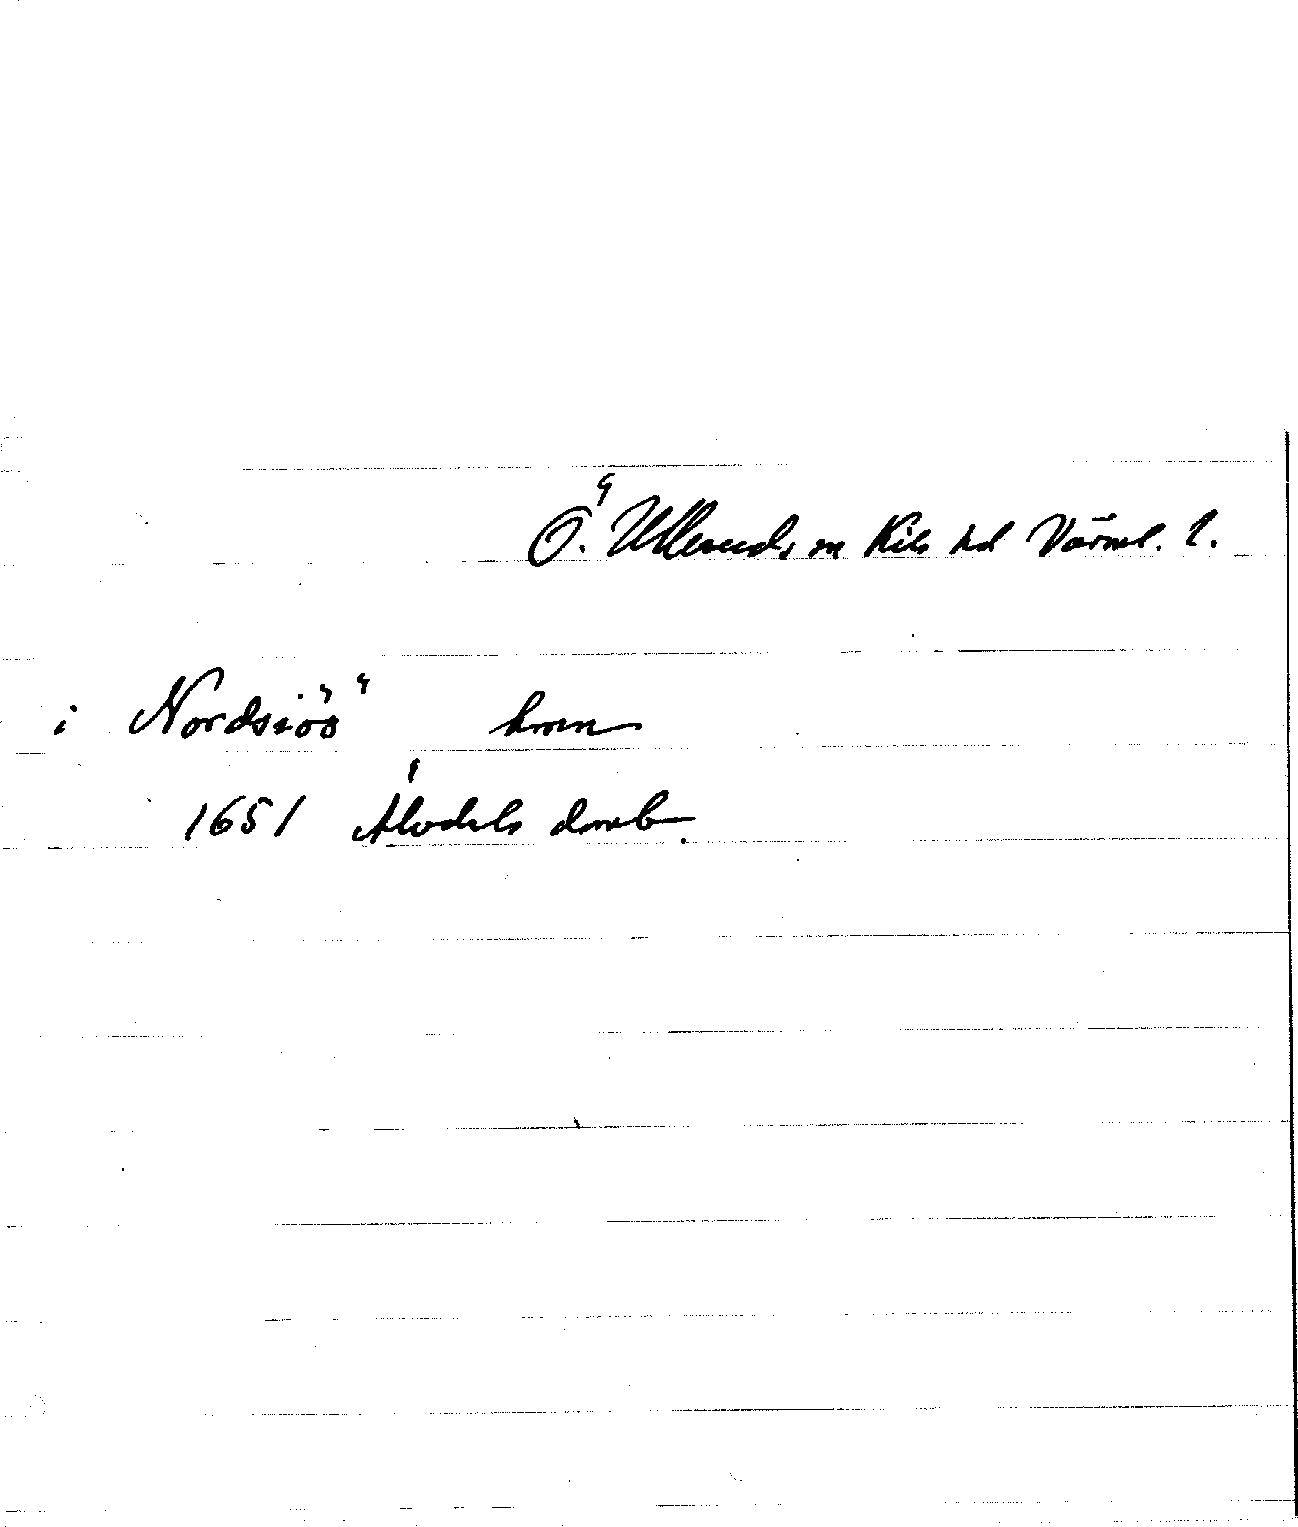 Ö. Ullerud sn Kils hd Värml. l.
i Nordsiöö hmn
1651 Älvdals domb.